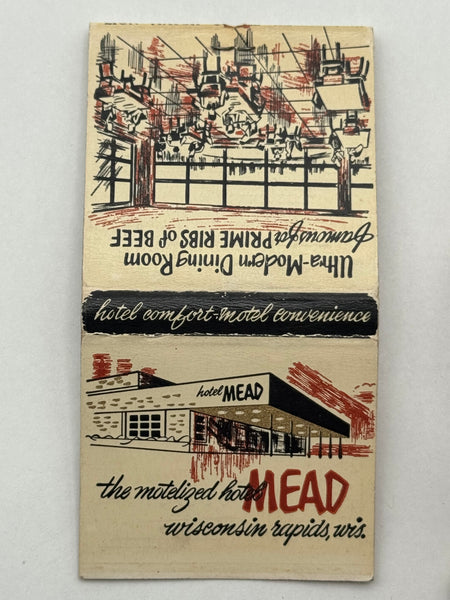 Ultra-Modern Dining Room
famous for PRIME RIBS of BEEF
hotel comfort-motel convenience
hotel MEAD
the motelized hotel MEAD
wisconsin rapids, wis.